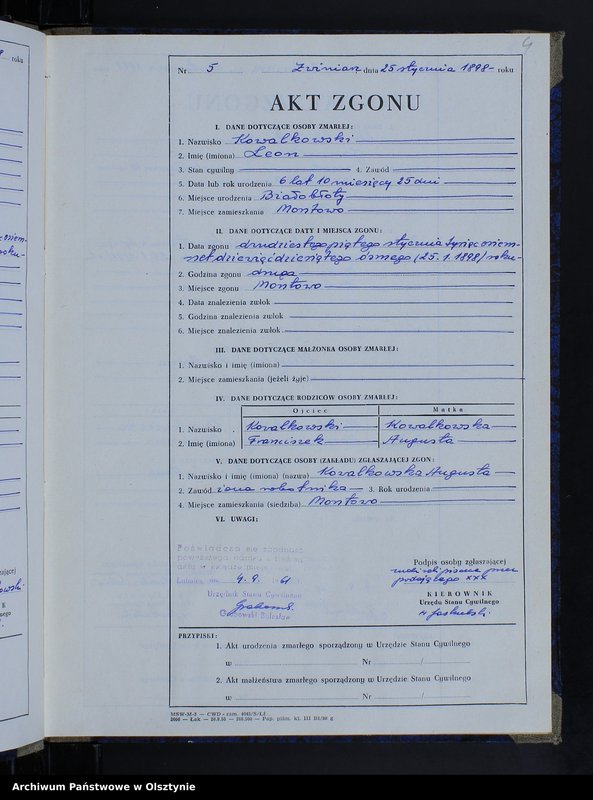 4
Nr 5 Zwiniarz dnia 25 stycznia 1898 roku
AKT ZGONU
I. DANE DOTYCZĄCE OSOBY ZMARŁEJ:
1. Nazwisko Kowalkowski
2. Imię (imiona) Leon
3. Stan cywilny 4. Zawód
5. Data lub rok urodzenia 6 lat 10 miesięcy 25 dni
6. Miejsce urodzenia Białobłoty
7. Miejsce zamieszkania Montowo
II. DANE DOTYCZĄCE DATY I MIEJSCA ZGONU:
1. Data zgonu dwudziestego piątego stycznia tysiąc osiem-
set dziewięćdziesiątego ósmego (25.1.1898) roku
2. Godzina zgonu druga
3. Miejsce zgonu Montowo
4. Data znalezienia zwłok
5. Godzina znalezienia zwłok
6. Miejsce znalezienia zwłok
III. DANE DOTYCZĄCE MAŁŻONKA OSOBY ZMARŁEJ:
1. Nazwisko i imię (imiona)
2. Miejsce zamieszkania (jeżeli żyje)
IV. DANE DOTYCZĄCE RODZICÓW OSOBY ZMARŁEJ:
Ojciec Matka
1. Nazwisko Kowalkowski Kowalkowska
2. Imię (imiona) Franciszek Augusta
V. DANE DOTYCZĄCE OSOBY (ZAKŁADU) ZGŁASZAJĄCEJ ZGON:
1. Nazwisko i imię (imiona) (nazwa) Kowalkowska Augusta
2. Zawód żona robotnika 3. Rok urodzenia
4. Miejsce zamieszkania (siedziba) Montowo
VI. UWAGI:
Poświadcza się zgodność
powyższego odpisu z treścią
4. 9. 1961
Urzędnik Stanu Cywilnego
Grabowski Bolesław
Podpis osoby zgłaszającej
znaki ręki pisane przez
podającego xxx
KIEROWNIK
Urzędu Stanu Cywilnego
PRZYPISKI:
1. Akt urodzenia zmarłego sporządzony w Urzędzie Stanu Cywilnego
w Nr /
2. Akt małżeństwa zmarłego sporządzony w Urzędzie Stanu Cywilnego
w Nr /
Archiwum Państwowe w Olsztynie